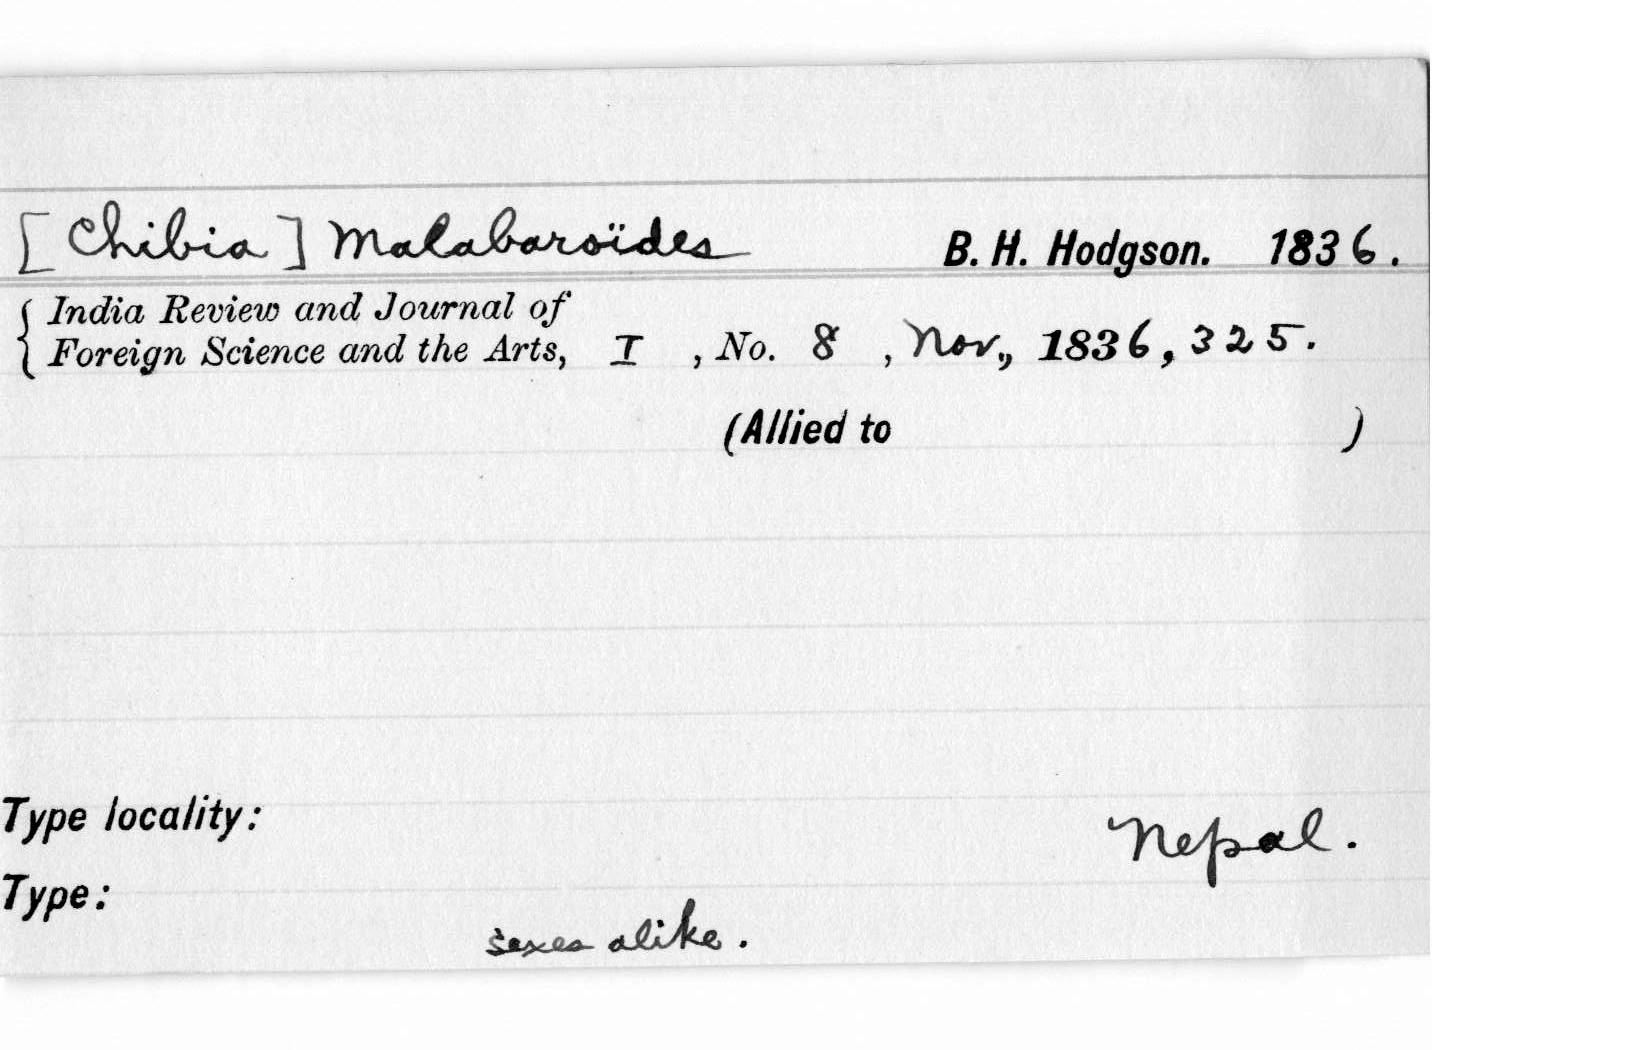 [Chibia] Malabaroïdes B. H. Hodgson. 1836.
{ India Review and Journal of
Foreign Science and the Arts, I , No. 8 , Nov., 1836, 325.
(Allied to )
Type locality:
Nepal.
Type:
sexes alike.